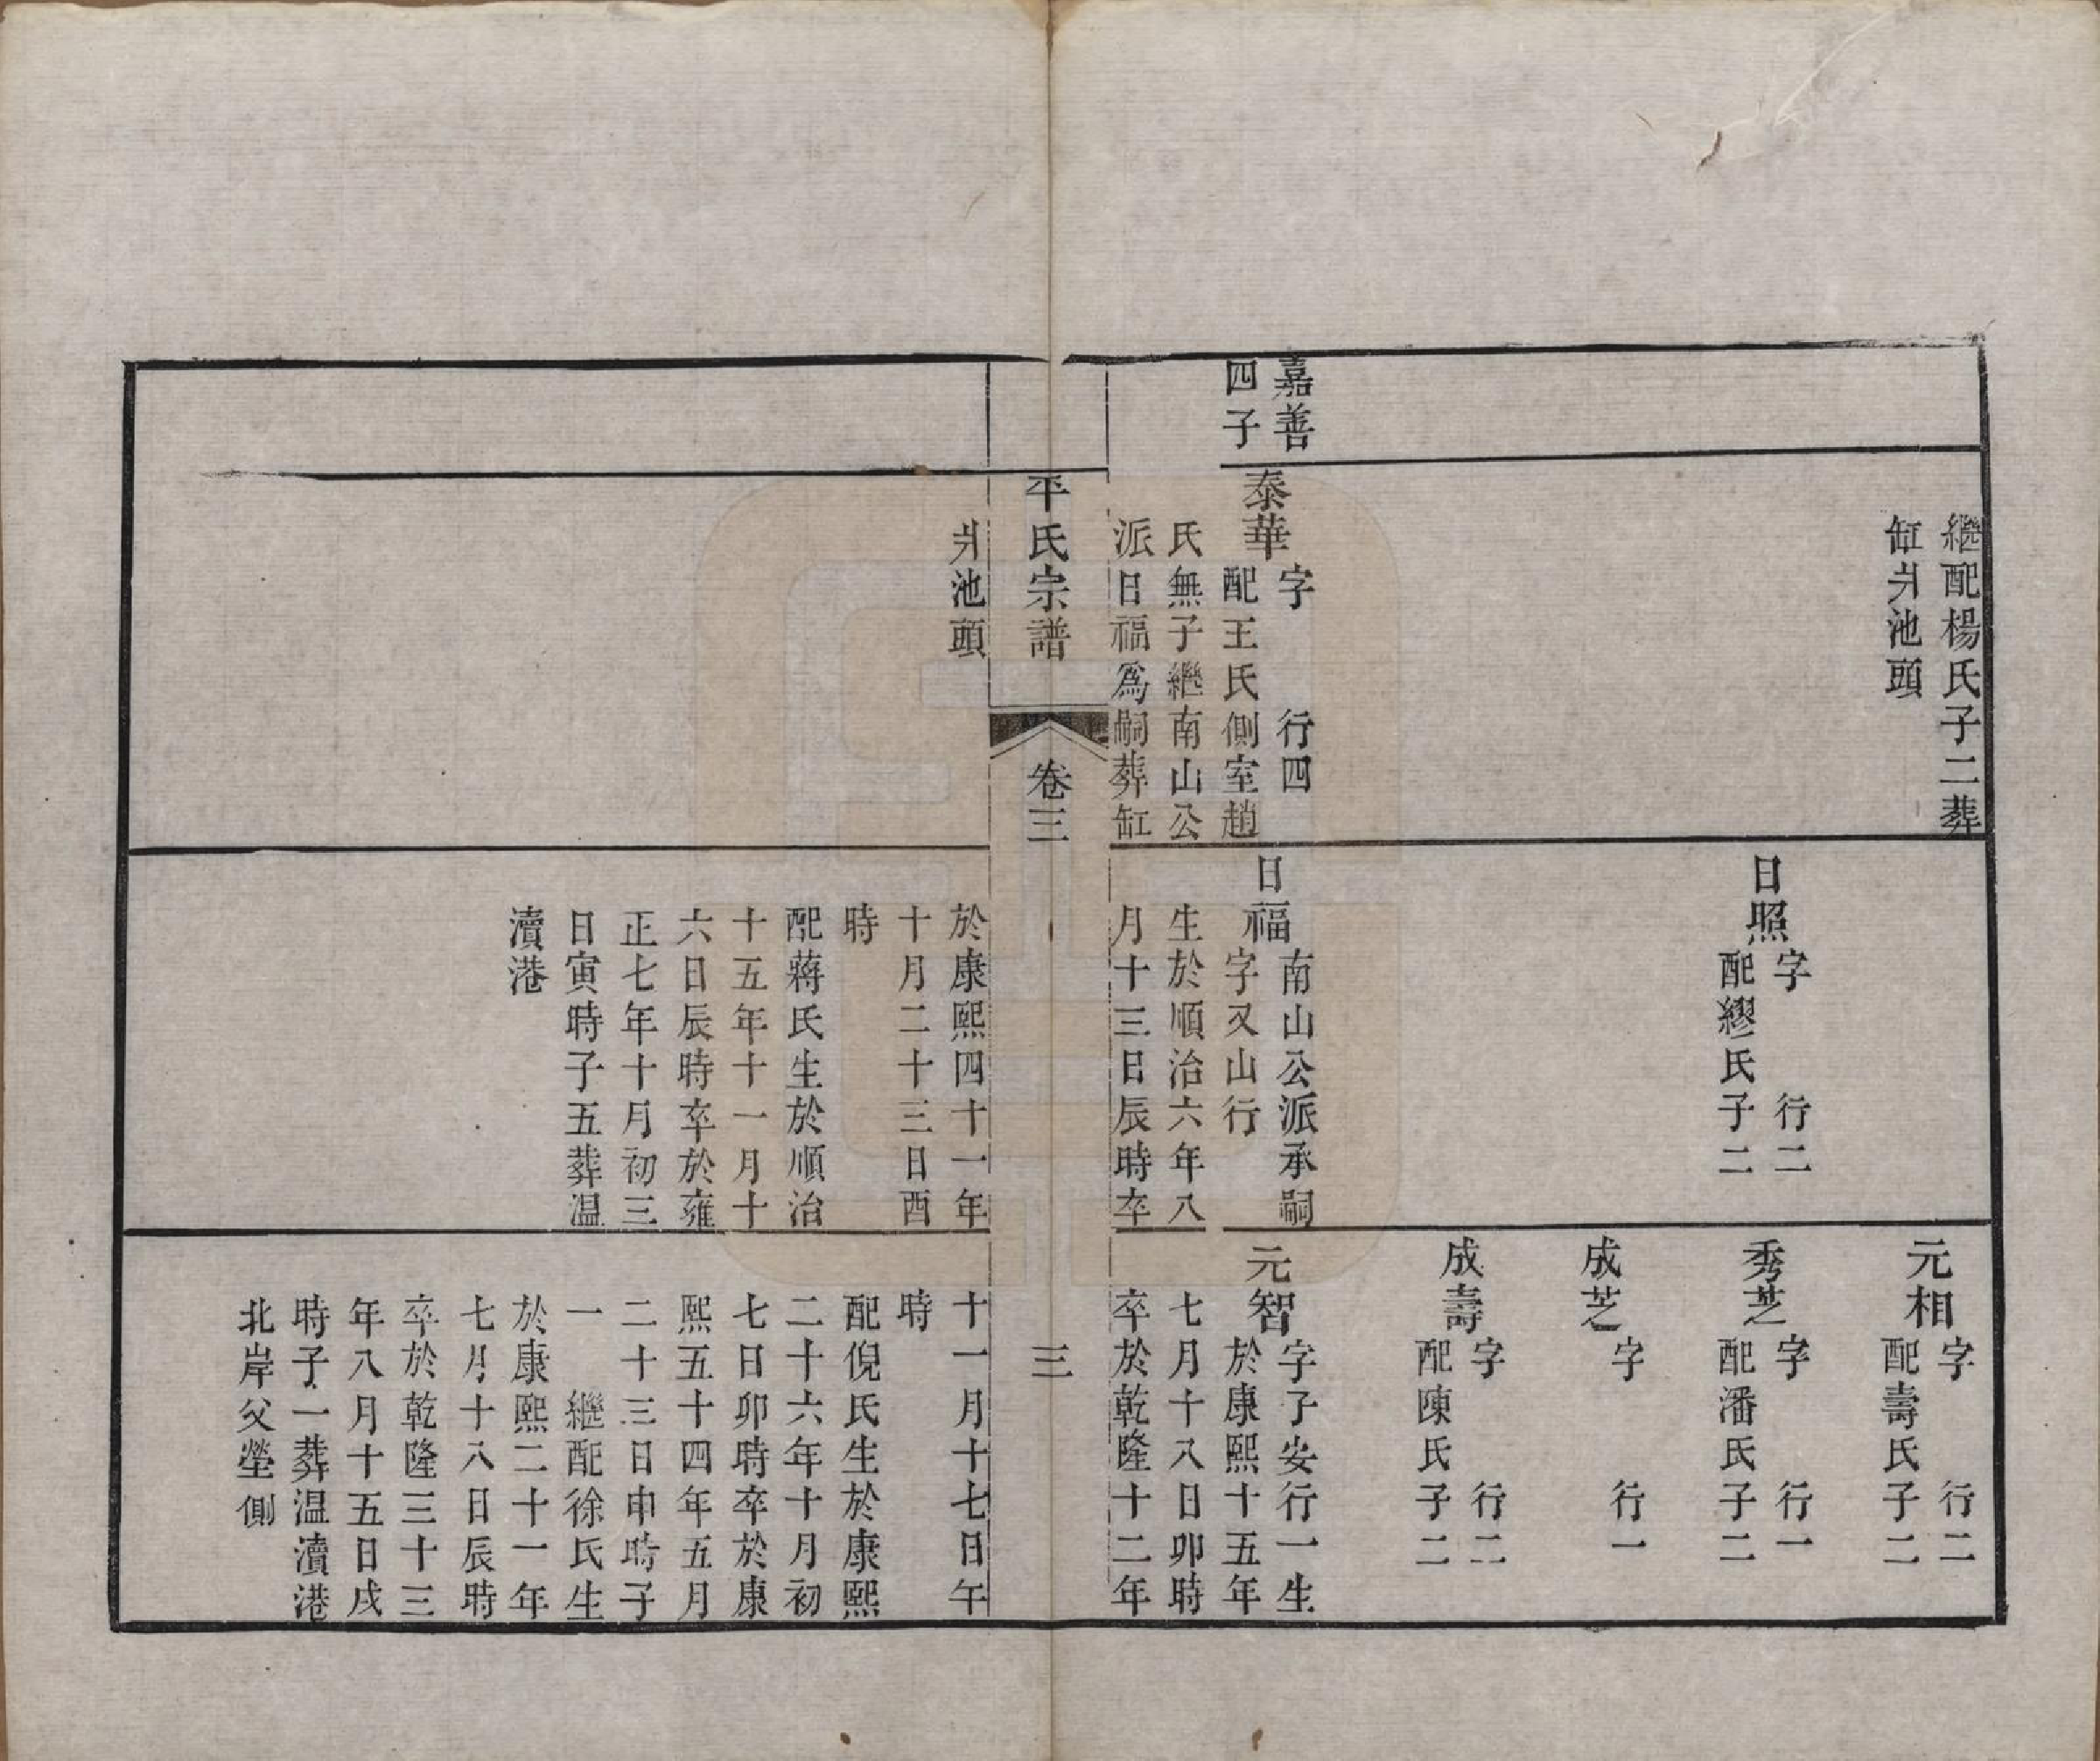 嘉善
四子
繼配楊氏子二葬
缸爿池頭
泰華
字　行四
配王氏側室趙
氏無子繼南山公
派日福爲嗣葬缸
日照
字　行二
配繆氏子二
日福
南山公派承嗣
字又山行
生於順治六年八
月十三日辰時卒
元相
字　行二
配壽氏子二
秀芝
字　行一
配潘氏子二
成芝
字　行一
成壽
字　行二
配陳氏子二
元智
字子安行一生
於康熙十五年
七月十八日卯時
卒於乾隆十二年
平氏宗譜
卷三
三
爿池頭
於康熙四十一年
十月二十三日酉
時
配蔣氏生於順治
十五年十一月十
六日辰時卒於雍
正七年十月初三
日寅時子五葬温
瀆港
十一月十七日午
時
配倪氏生於康熙
二十六年十月初
七日卯時卒於康
熙五十四年五月
二十三日申時子
一　繼配徐氏生
於康熙二十一年
七月十八日辰時
卒於乾隆三十三
年八月十五日戌
時子一葬温瀆港
北岸父塋側